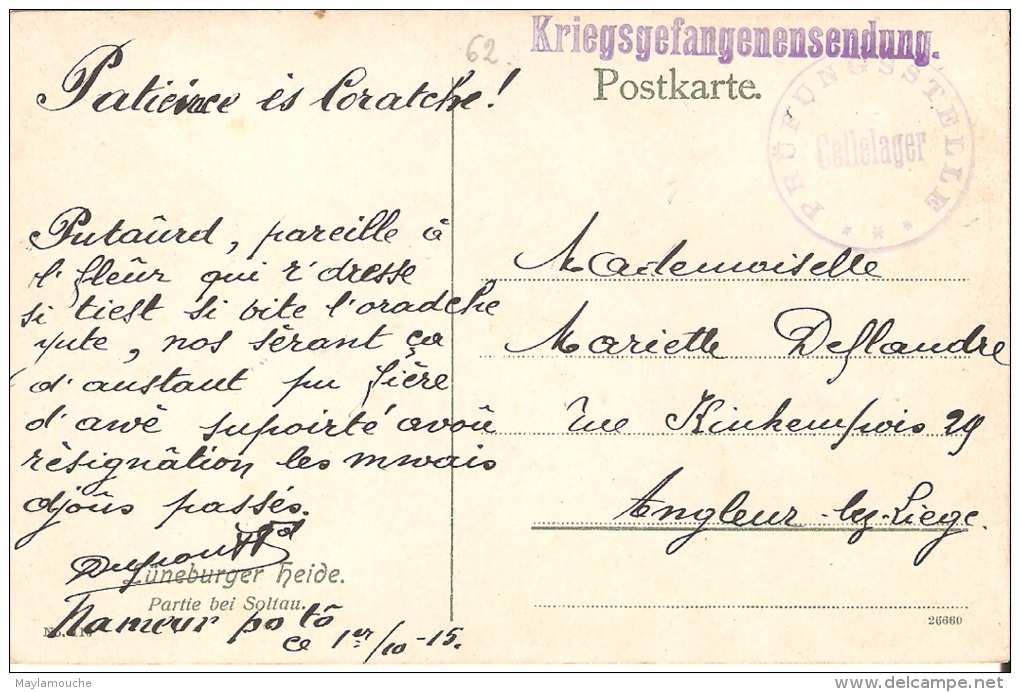 62.
Kriegsgefangenensendung.
Postkarte.
PRÜFUNGSSTELLE
Cellelager
Patiëince ès Coratche!
Putaûrd, pareille à
l' fleûr qui r'dresse
si tiest si vite l'oradche
yute, nos sèrant ça
d'austant pu fière
d'awè supoirté avou
rèsignâtion les mwais
djoûs passés.
Lüneburger Heide.
Partie bei Soltau.
Nameur po tô
ce 1er/10-15.
Mademoiselle
Mariette Deflandre
rue Kinkempois 29
Angleur-lez-Liege.
26660
Maylamouche
delcampe.net